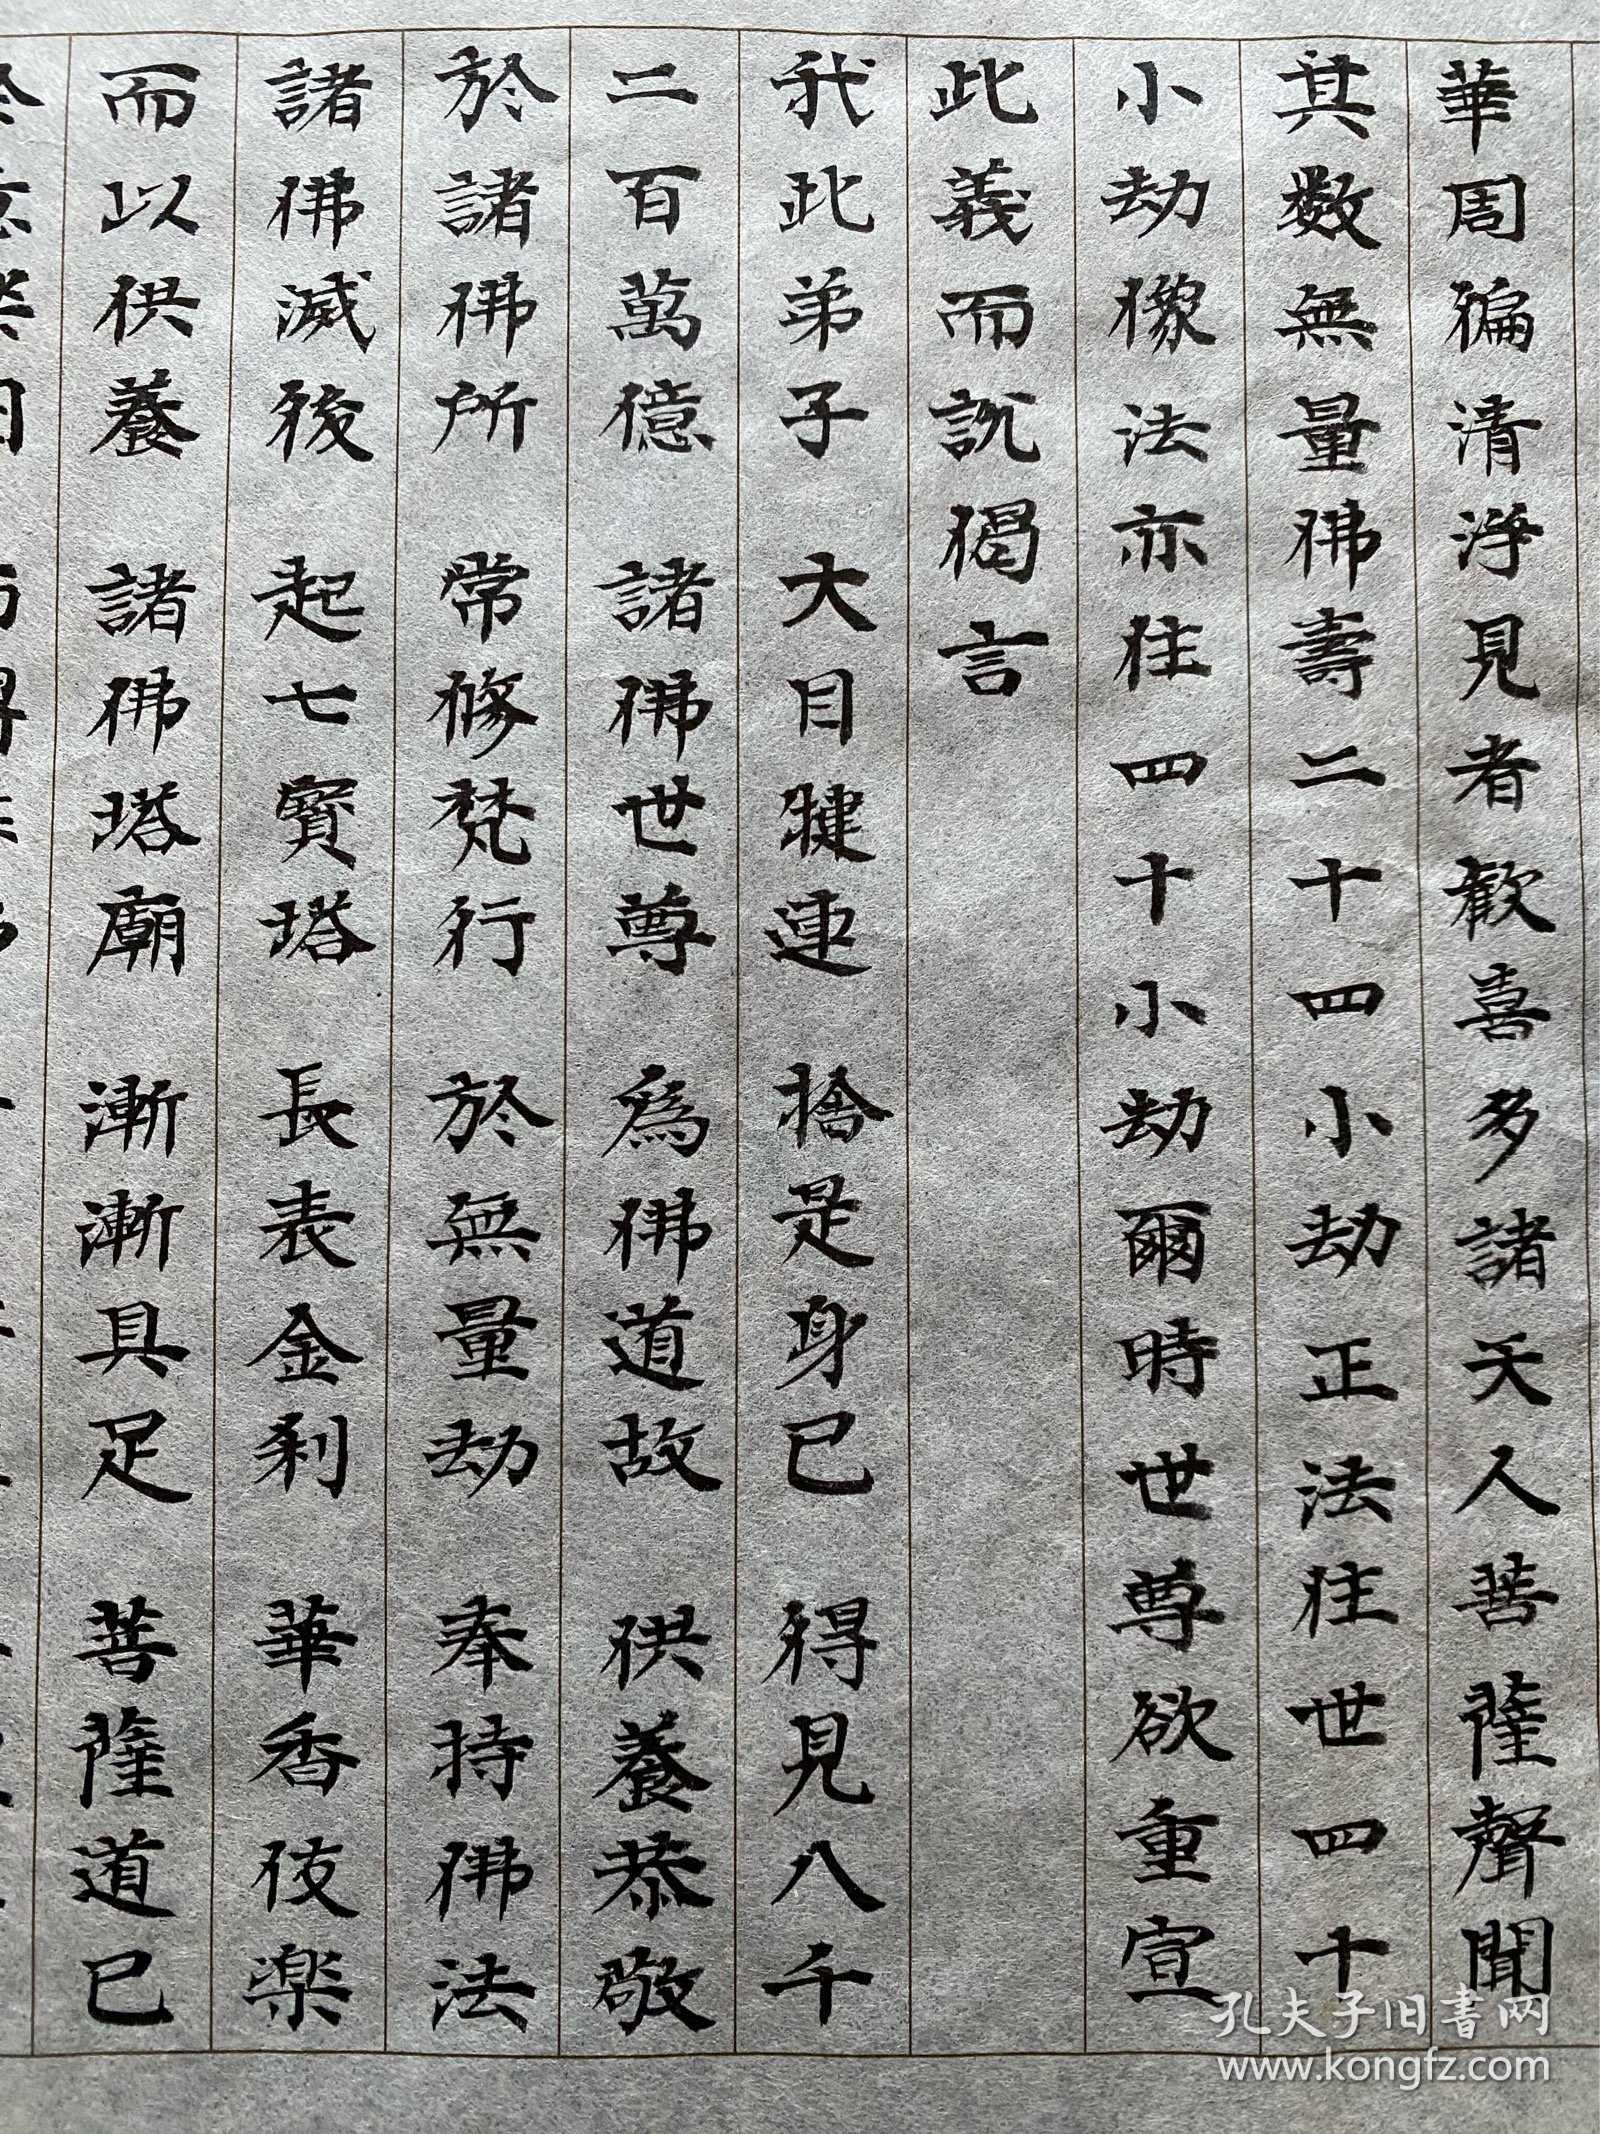 華周徧清淨見者歡喜多諸天人菩薩聲聞
其数無量佛壽二十四小劫正法住世四十
小劫像法亦住四十小劫爾時世尊欲重宣
此義而說偈言
我此弟子 大目犍連 捨是身已 得見八千
二百萬億 諸佛世尊 爲佛道故 供養恭敬
於諸佛所 常修梵行 於無量劫 奉持佛法
諸佛滅後 起七寶塔 長表金刹 華香伎楽
而以供養 諸佛塔廟 漸漸具足 菩薩道已
孔夫子旧書网
www.kongfz.com